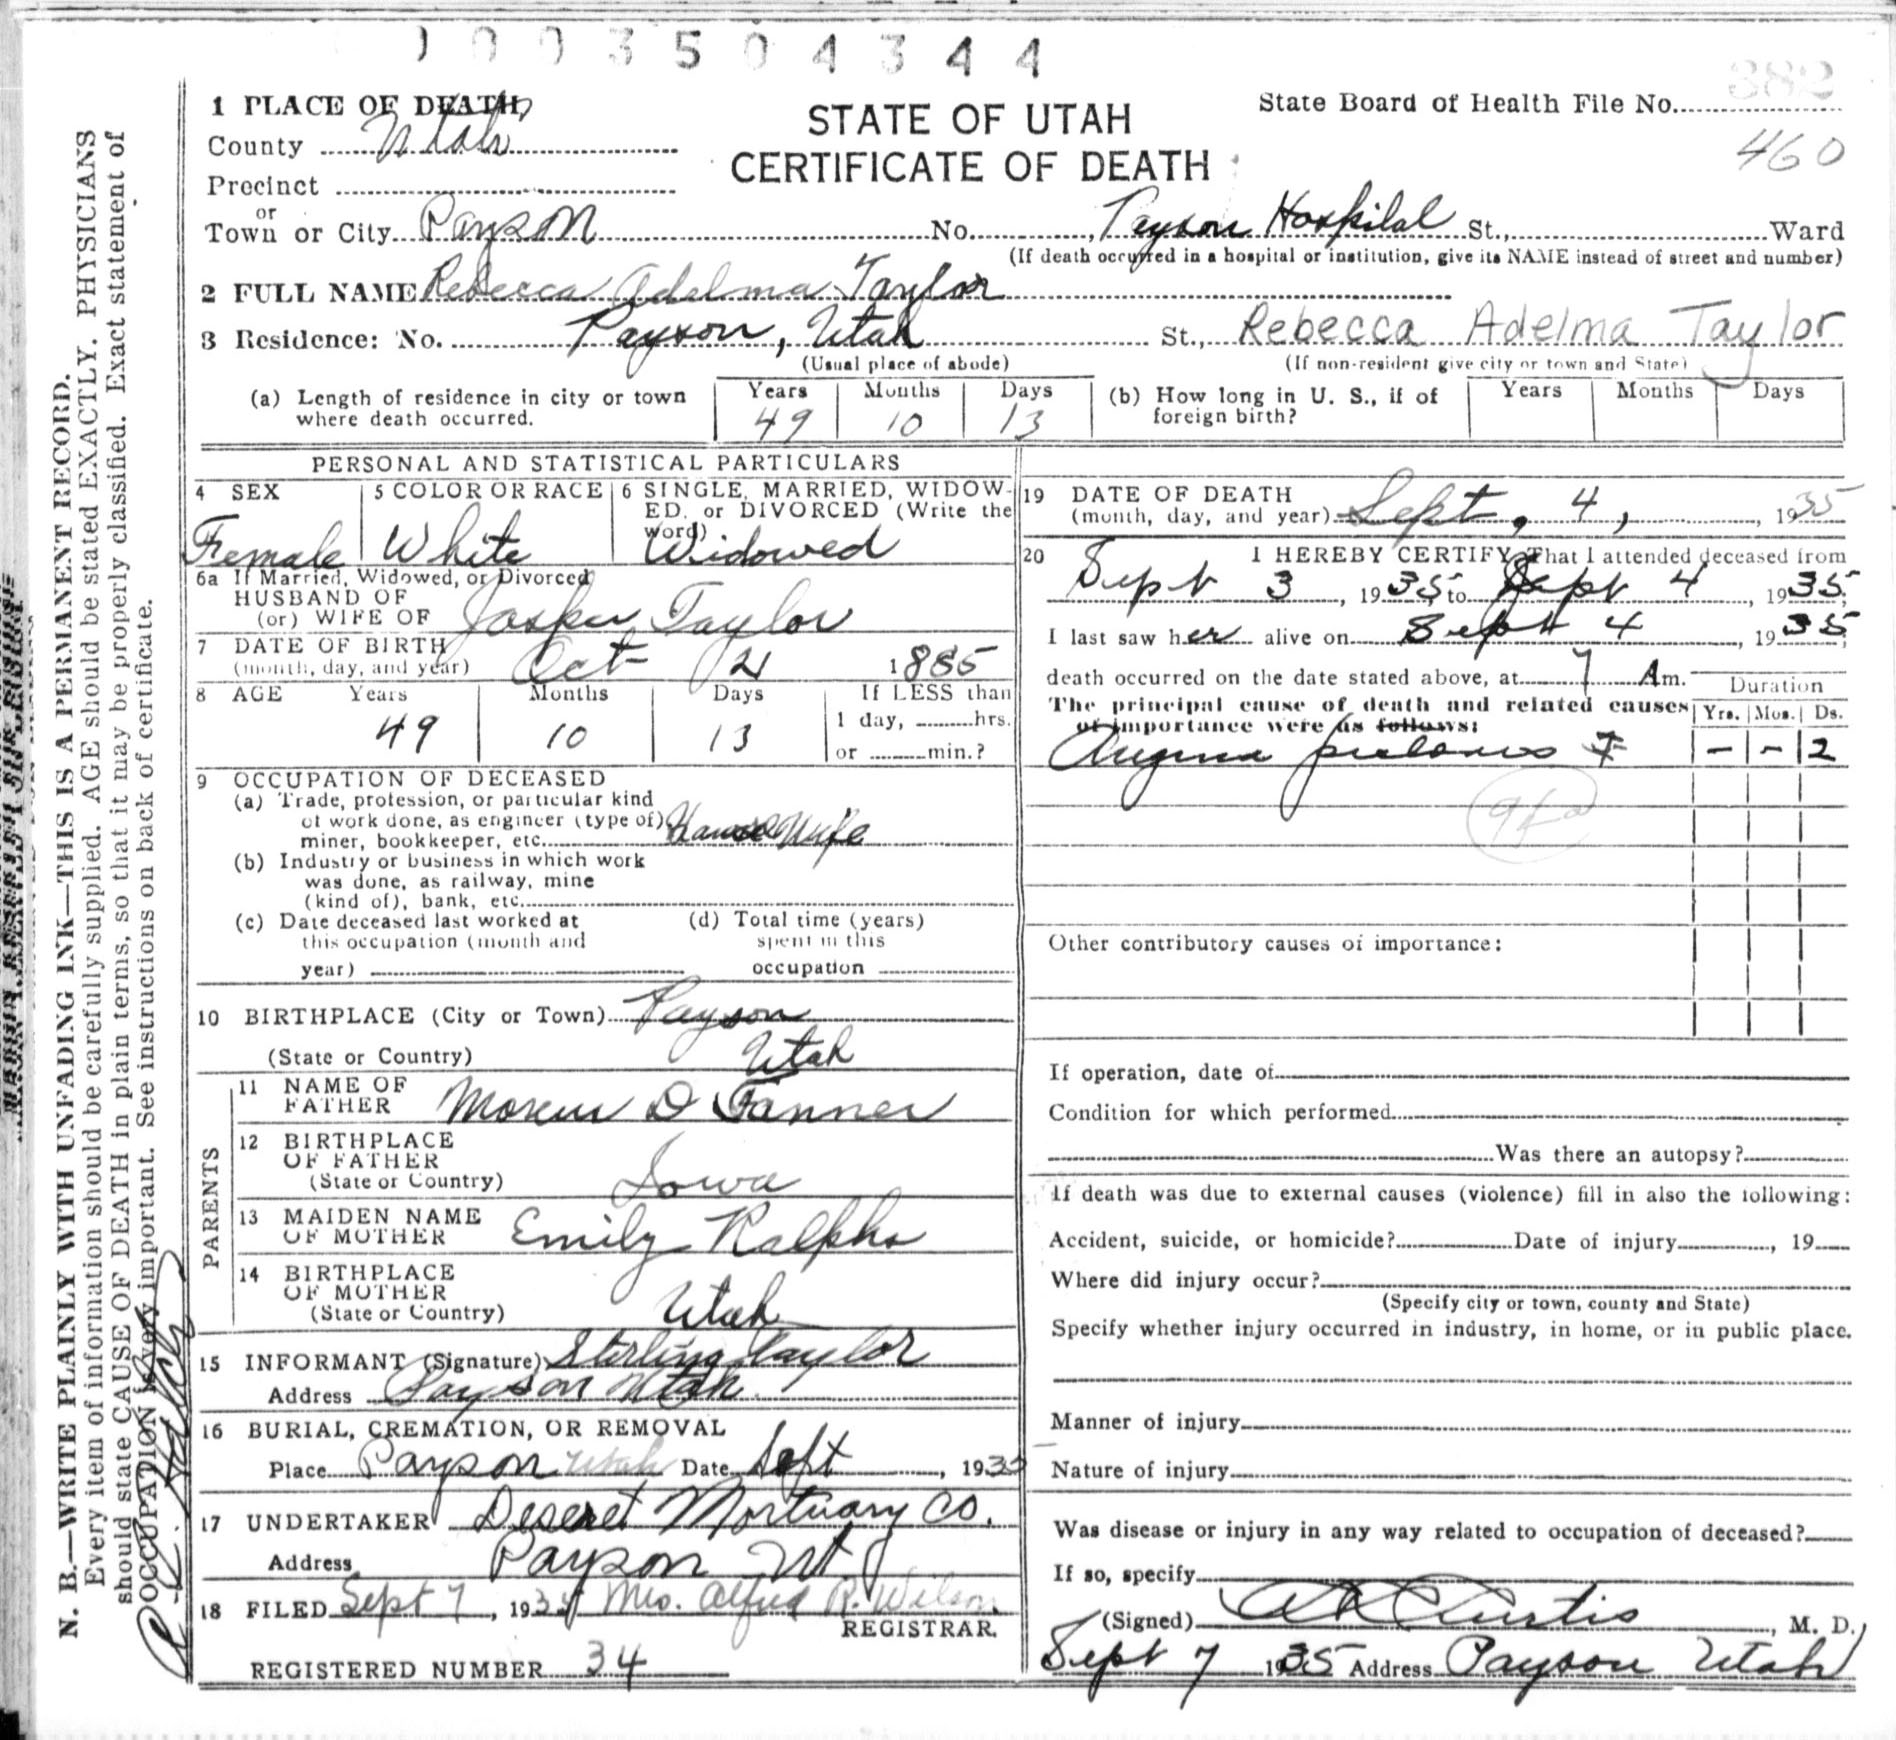 1003504344
1 PLACE OF DEATH
STATE OF UTAH
CERTIFICATE OF DEATH
State Board of Health File No. 382
460
County Utah
Precinct
or
Town or City Payson No. Payson Hospital St., Ward
(If death occurred in a hospital or institution, give its NAME instead of street and number)
2 FULL NAME Rebecca Adelma Taylor
3 Residence: No. Payson, Utah St., Rebecca Adelma Taylor
(Usual place of abode) (If non-resident give city or town and State)
(a) Length of residence in city or town where death occurred. Years 49 Months 10 Days 13
(b) How long in U. S., if of foreign birth? Years Months Days
PERSONAL AND STATISTICAL PARTICULARS
4 SEX
Female
5 COLOR OR RACE
White
6 SINGLE, MARRIED, WIDOW-
ED, or DIVORCED (Write the
word)
Widowed
6a If Married, Widowed, or Divorced
HUSBAND OF
(or) WIFE OF Jasper Taylor
7 DATE OF BIRTH
(month, day, and year) Oct 21 1885
8 AGE Years Months Days If LESS than
49 10 13 1 day, hrs.
or min.?
9 OCCUPATION OF DECEASED
(a) Trade, profession, or particular kind
of work done, as engineer (type of)
miner, bookkeeper, etc. House Wife
(b) Industry or business in which work
was done, as railway, mine
(kind of), bank, etc.
(c) Date deceased last worked at
this occupation (month and
year)
(d) Total time (years)
spent in this
occupation
10 BIRTHPLACE (City or Town) Payson
(State or Country) Utah
PARENTS
11 NAME OF
FATHER D Tanner
12 BIRTHPLACE
OF FATHER
(State or Country) Iowa
13 MAIDEN NAME
OF MOTHER Emily Ralphs
14 BIRTHPLACE
OF MOTHER
(State or Country) Utah
15 INFORMANT (Signature) Sterling Taylor
Address Payson Utah
16 BURIAL, CREMATION, OR REMOVAL
Place Payson Utah Date Sept, 1935
17 UNDERTAKER Deseret Mortuary Co.
Address Payson Ut
18 FILED Sept 7, 1935 Mrs. Alfred R. Wilson
REGISTRAR.
REGISTERED NUMBER 34
19 DATE OF DEATH
(month, day, and year) Sept. 4, 1935
20 I HEREBY CERTIFY, That I attended deceased from
Sept 3, 1935, to Sept 4, 1935,
I last saw her alive on Sept 4, 1935,
death occurred on the date stated above, at 7 A m.
Duration
The principal cause of death and related causes Yrs. Mos. Ds.
of importance were as follows:
Angina pectoris - - 2
94a
Other contributory causes of importance:
If operation, date of
Condition for which performed
Was there an autopsy?
If death was due to external causes (violence) fill in also the following:
Accident, suicide, or homicide? Date of injury, 19
Where did injury occur?
(Specify city or town, county and State)
Specify whether injury occurred in industry, in home, or in public place.
Manner of injury
Nature of injury
Was disease or injury in any way related to occupation of deceased?
If so, specify
(Signed) Curtis, M. D.
Sept 7 1935 Address Payson Utah
N. B.—WRITE PLAINLY WITH UNFADING INK—THIS IS A PERMANENT RECORD.
Every item of information should be carefully supplied. AGE should be stated EXACTLY. PHYSICIANS
should state CAUSE OF DEATH in plain terms, so that it may be properly classified. Exact statement of
OCCUPATION is very important. See instructions on back of certificate.